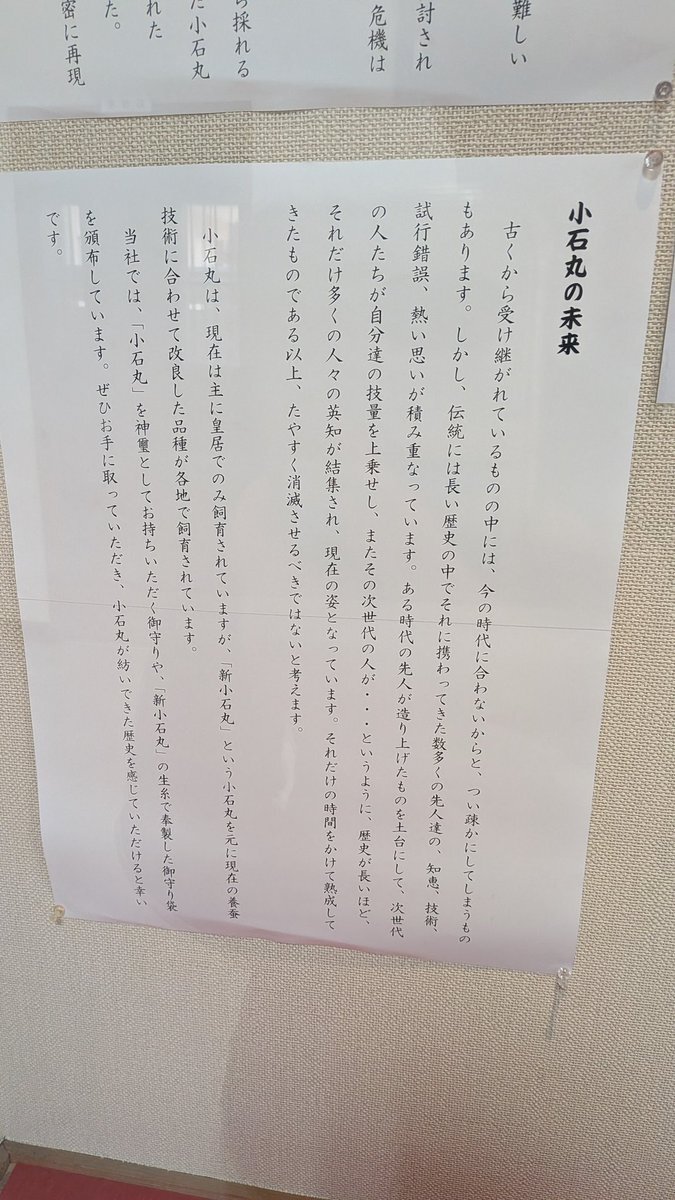 難しい
討され
危機は
ら採れる
た小石丸
れた
た。
密に再現
小石丸の未来
古くから受け継がれているものの中には、今の時代に合わないからと、つい疎かにしてしまうもの
もあります。しかし、伝統には長い歴史の中でそれに携わってきた数多くの先人達の、知恵、技術、
試行錯誤、熱い思いが積み重なっています。ある時代の先人が造り上げたものを土台にして、次世代
の人たちが自分達の技量を上乗せし、またその次世代の人が・・・というように、歴史が長いほど、
それだけ多くの人々の英知が結集され、現在の姿となっています。それだけの時間をかけて熟成して
きたものである以上、たやすく消滅させるべきではないと考えます。
小石丸は、現在は主に皇居でのみ飼育されていますが、「新小石丸」という小石丸を元に現在の養蚕
技術に合わせて改良した品種が各地で飼育されています。
当社では、「小石丸」を神璽としてお持ちいただく御守りや、「新小石丸」の生糸で奉製した御守り袋
を頒布しています。ぜひお手に取っていただき、小石丸が紡いできた歴史を感じていただけると幸い
です。